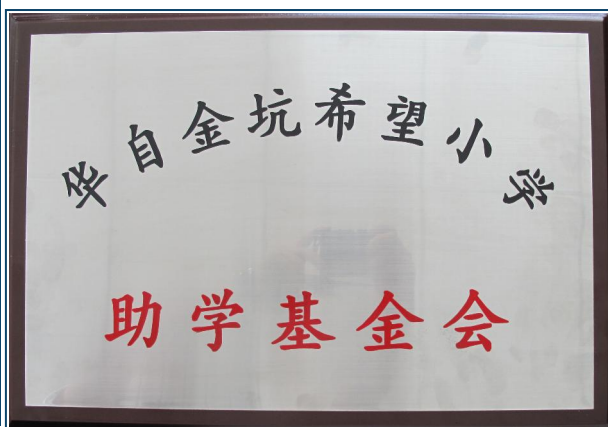 华自金坑希望小学
助学基金会